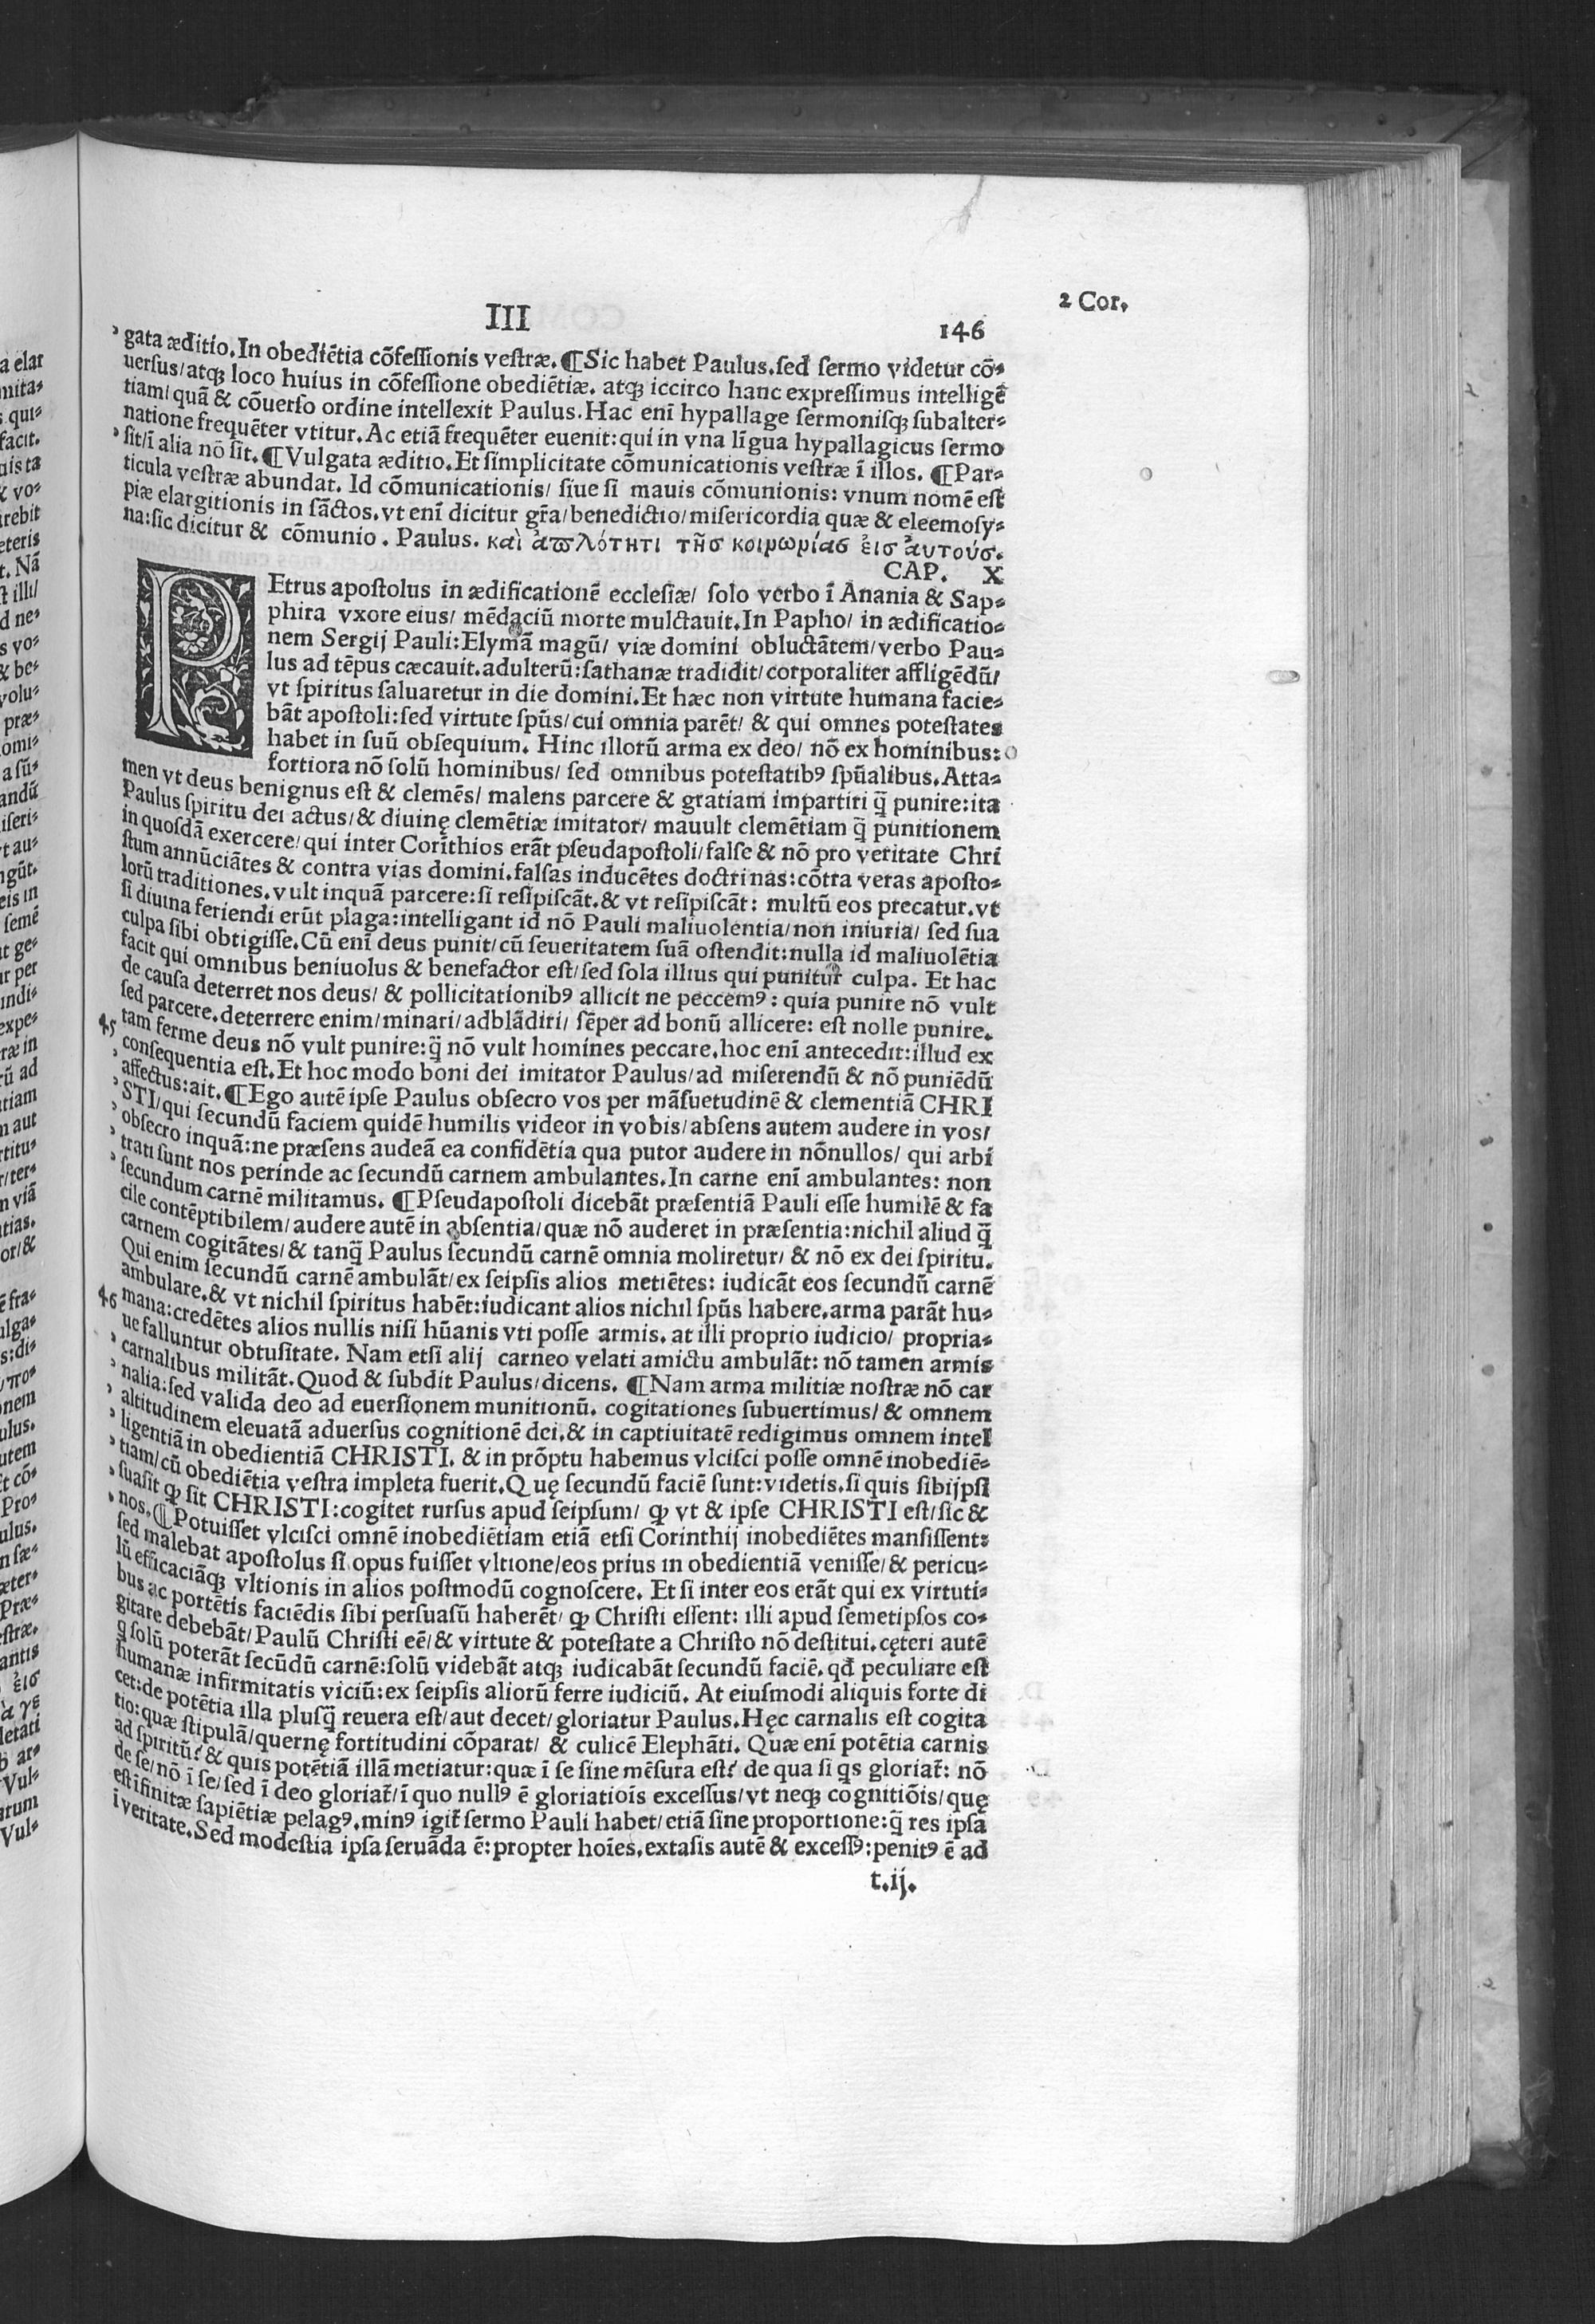 III
146
2 Cor.
gata æditio. In obediẽtia cõfeſſionis veſtræ. ¶Sic habet Paulus. ſed ſermo videtur cõ⸗
uerſus/ atq́ꝫ loco huius in cõfeſſione obediẽtiæ. atqꝫ iccirco hanc expreſſimus intelligẽ
tiam/ quã & cõuerſo ordine intellexit Paulus. Hac enĩ hypallage ſermoniſqꝫ ſubalter⸗
natione frequẽter vtitur. Ac etiã frequẽter euenit: qui in vna lĩgua hypallagicus ſermo
ſit/ ĩ alia nõ ſit. ¶Vulgata æditio. Et ſimplicitate cõmunicationis veſtræ ĩ illos. ¶Par⸗
ticula veſtræ abundat. Id cõmunicationis/ ſiue ſi mauis cõmunionis: vnum nomẽ eſt
piæ elargitionis in ſãctos. vt enĩ dicitur gr̃a/ benedictio/ miſericordia quæ & eleemoſy⸗
na: ſic dicitur & cõmunio. Paulus. καὶ ἁπλότητι τῆσ κοινωνίασ ἐισ ἀυτούσ.
CAP. X
PEtrus apoſtolus in ædificationẽ eccleſiæ/ ſolo verbo ĩ Anania & Sap⸗
phira vxore eius/ mẽdaciũ morte mulctauit. In Papho/ in ædificatio⸗
nem Sergij Pauli: Elymã magũ/ viæ domini obluctãtem/ verbo Pau⸗
lus ad tẽpus cæcauit. adulterũ: ſathanæ tradidit/ corporaliter affligẽdũ/
vt ſpiritus ſaluaretur in die domini. Et hæc non virtute humana facie⸗
bãt apoſtoli: ſed virtute ſpũs/ cui omnia parẽt/ & qui omnes poteſtates
habet in ſuũ obſequium. Hinc illorũ arma ex deo/ nõ ex hominibus:
fortiora nõ ſolũ hominibus/ ſed omnibus poteſtatibꝰ ſpũalibus. Atta⸗
men vt deus benignus eſt & clemẽs/ malens parcere & gratiam impartiri q̃ punire: ita
Paulus ſpiritu dei actus/ & diuinę clemẽtiæ imitator/ mauult clemẽtiam q̃ punitionem
in quoſdã exercere/ qui inter Corĩthios erãt pſeudapoſtoli/ falſe & nõ pro veritate Chri
ſtum annũciãtes & contra vias domini. falſas inducẽtes doctrinas: cõtra veras apoſto⸗
lorũ traditiones. vult inquã parcere: ſi reſipiſcãt. & vt reſipiſcãt: multũ eos precatur. vt
ſi diuina feriendi erũt plaga: intelligant id nõ Pauli maliuolentia/ non iniuria/ ſed ſua
culpa ſibi obtigiſſe. Cũ enĩ deus punit/ cũ ſeueritatem ſuã oſtendit: nulla id maliuolẽtia
facit qui omnibus beniuolus & benefactor eſt/ ſed ſola illius qui punitur culpa. Et hac
de cauſa deterret nos deus/ & pollicitationibꝰ allicit ne peccemꝰ: quia punire nõ vult
ſed parcere. deterrere enim/ minari/ adblãdiri/ ſẽper ad bonũ allicere: eſt nolle punire.
45 tam ferme deus nõ vult punire: q̃ nõ vult homines peccare. hoc enĩ antecedit: illud ex
conſequentia eſt. Et hoc modo boni dei imitator Paulus/ ad miſerendũ & nõ puniẽdũ
affectus: ait. ¶Ego autẽ ipſe Paulus obſecro vos per mãſuetudinẽ & clementiã CHRI
STI/ qui ſecundũ faciem quidẽ humilis videor in vobis/ abſens autem audere in vos/
obſecro inquã: ne præſens audeã ea confidẽtia qua putor audere in nõnullos/ qui arbi
trati ſunt nos perinde ac ſecundũ carnem ambulantes. In carne enĩ ambulantes: non
ſecundum carnẽ militamus. ¶Pſeudapoſtoli dicebãt præſentiã Pauli eſſe humilẽ & fa
cile contẽptibilem/ audere autẽ in abſentia/ quæ nõ auderet in præſentia: nichil aliud q̃
carnem cogitãtes/ & tanq̃ Paulus ſecundũ carnẽ omnia moliretur/ & nõ ex dei ſpiritu.
Qui enim ſecundũ carnẽ ambulãt/ ex ſeipſis alios metiẽtes: iudicãt eos ſecundũ carnẽ
ambulare. & vt nichil ſpiritus habẽt: iudicant alios nichil ſpũs habere. arma parãt hu⸗
46 mana: credẽtes alios nullis niſi hũanis vti poſſe armis. at illi proprio iudicio/ propria⸗
ue falluntur obtuſitate. Nam etſi alij carneo velati amictu ambulãt: nõ tamen armis
carnalibus militãt. Quod & ſubdit Paulus/ dicens. ¶Nam arma militiæ noſtræ nõ car
nalia: ſed valida deo ad euerſionem munitionũ. cogitationes ſubuertimus/ & omnem
altitudinem eleuatã aduerſus cognitionẽ dei. & in captiuitatẽ redigimus omnem intel
ligentiã in obedientiã CHRISTI. & in prõptu habemus vlciſci poſſe omnẽ inobediẽ⸗
tiam/ cũ obediẽtia veſtra impleta fuerit. Quę ſecundũ faciẽ ſunt: videtis. ſi quis ſibijpſi
ſuaſit ꝙ ſit CHRISTI: cogitet rurſus apud ſeipſum/ ꝙ vt & ipſe CHRISTI eſt/ ſic &
nos. ¶Potuiſſet vlciſci omnẽ inobediẽtiam etiã etſi Corinthij inobediẽtes manſiſſent:
ſed malebat apoſtolus ſi opus fuiſſet vltione/ eos prius in obedientiã veniſſe/ & pericu⸗
lũ efficaciãqꝫ vltionis in alios poſtmodũ cognoſcere. Et ſi inter eos erãt qui ex virtuti⸗
bus ac portẽtis faciẽdis ſibi perſuaſũ haberẽt/ ꝙ Chriſti eſſent: illi apud ſemetipſos co⸗
gitare debebãt/ Paulũ Chriſti eẽ/ & virtute & poteſtate a Chriſto nõ deſtitui. cęteri autẽ
q ſolũ poterãt ſecũdũ carnẽ: ſolũ videbãt atqꝫ iudicabãt ſecundũ faciẽ. qd̃ peculiare eſt
humanæ infirmitatis viciũ: ex ſeipſis aliorũ ferre iudiciũ. At eiuſmodi aliquis forte di
cet: de potẽtia illa pluſq̃ reuera eſt/ aut decet/ gloriatur Paulus. Hęc carnalis eſt cogita
tio: quæ ſtipulã/ quernę fortitudini cõparat/ & culicẽ Elephãti. Quæ enĩ potẽtia carnis
ad ſpiritũ? & quis potẽtiã illã metiatur: quæ ĩ ſe ſine mẽſura eſt? de qua ſi q̇s gloriat̃: nõ
de ſe/ nõ ĩ ſe/ ſed ĩ deo gloriat̃/ ĩ quo nullꝰ ẽ gloriatiõis exceſſus/ vt neqꝫ cognitiõis/ quę
eſt ĩfinitæ ſapiẽtiæ pelagꝰ. minꝰ igit̃ ſermo Pauli habet/ etiã ſine proportione: q̃ res ipſa
ĩ veritate. Sed modeſtia ipſa ſeruãda ẽ: propter hoĩes. extaſis autẽ & exceſſꝰ: penitꝰ ẽ ad
t.ij.